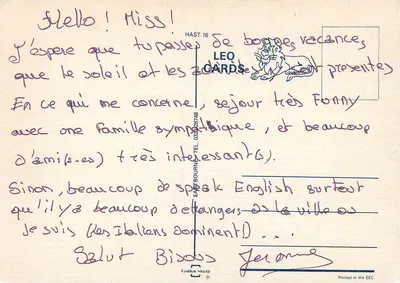 Hello! Miss!
HAST-16
J'espère que tu passes de bonnes vacances,
LEO
CARDS
que le soleil et les sont présentes
En ce qui me concerne, séjour très FUNNY
avec une famille sympathique, et beaucoup
d'ami(s-es) très intéressant(s).
EASTBOURNE TEL
Sinon, beaucoup de speak English surtout
qu'il y a beaucoup d'étrangers de la ville où
je suis (les Italiens dominent!) ...
Salut Bisous Jérôme
Golden Shield
Printed in the EEC